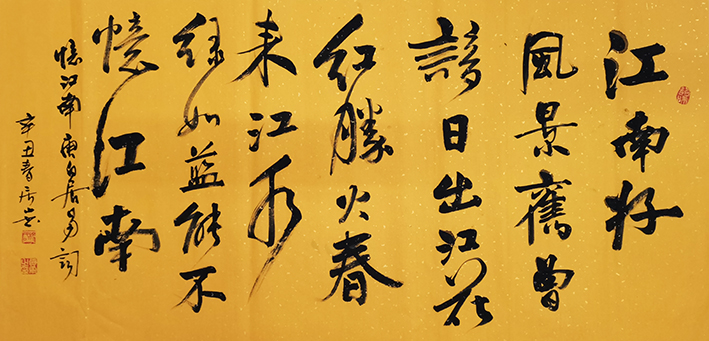 江南好
風景舊曾
諳日出江花
紅勝火春
来江水
绿如蓝能不
憶江南
憶江南唐白居易词
辛丑春